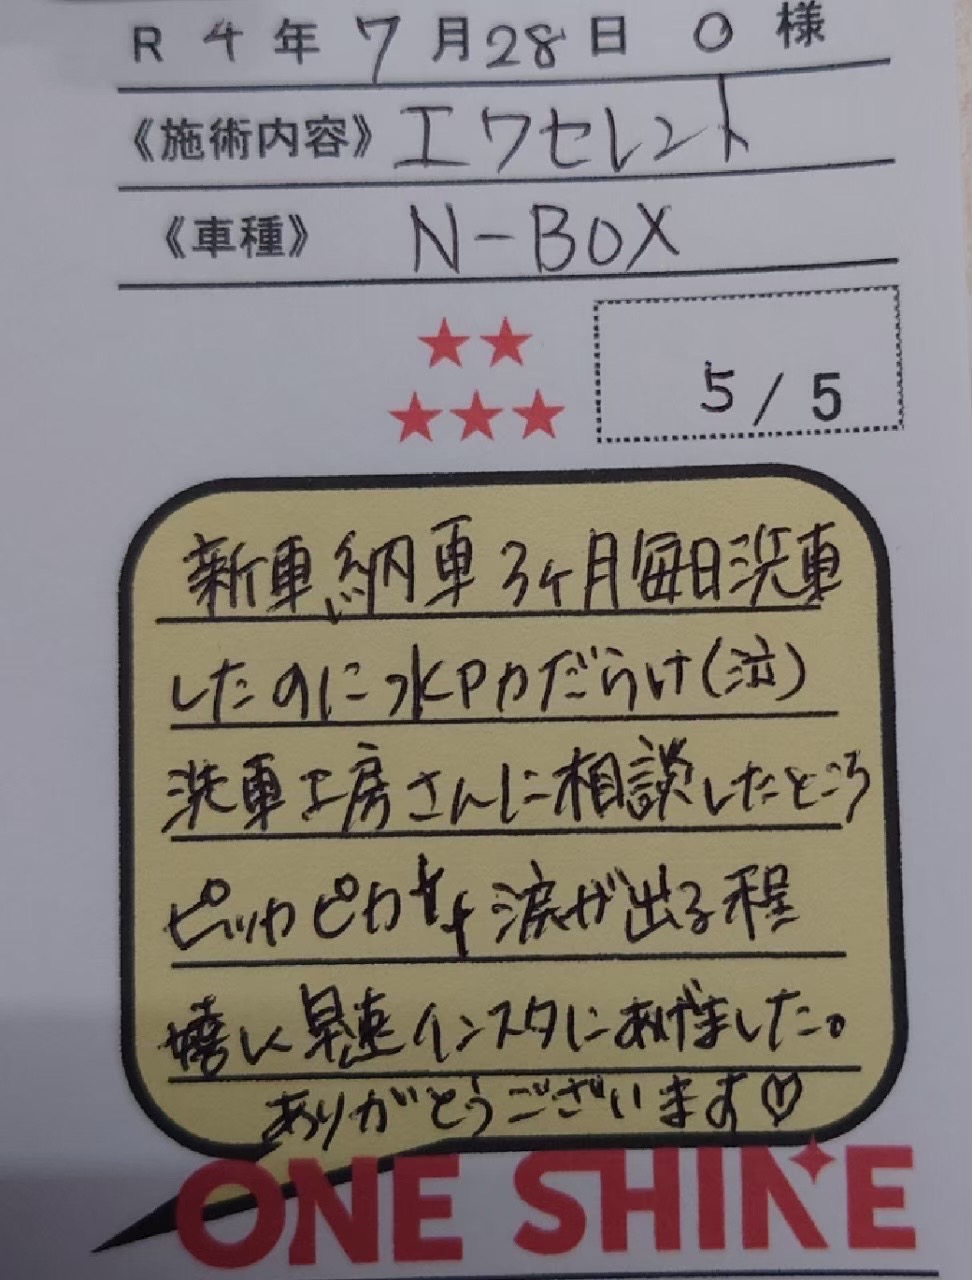 R 4年 7月28日 O 様
《施術内容》エクセレント
《車種》N-BOX
★★
★★★
5/5
新車、納車3ヶ月毎日洗車
したのに水アカだらけ(泣)
洗車工房さんに相談したところ
ピッカピカ 涙が出る程
嬉しく早速インスタにあげました。
ありがとうございます♡
ONE SHINE